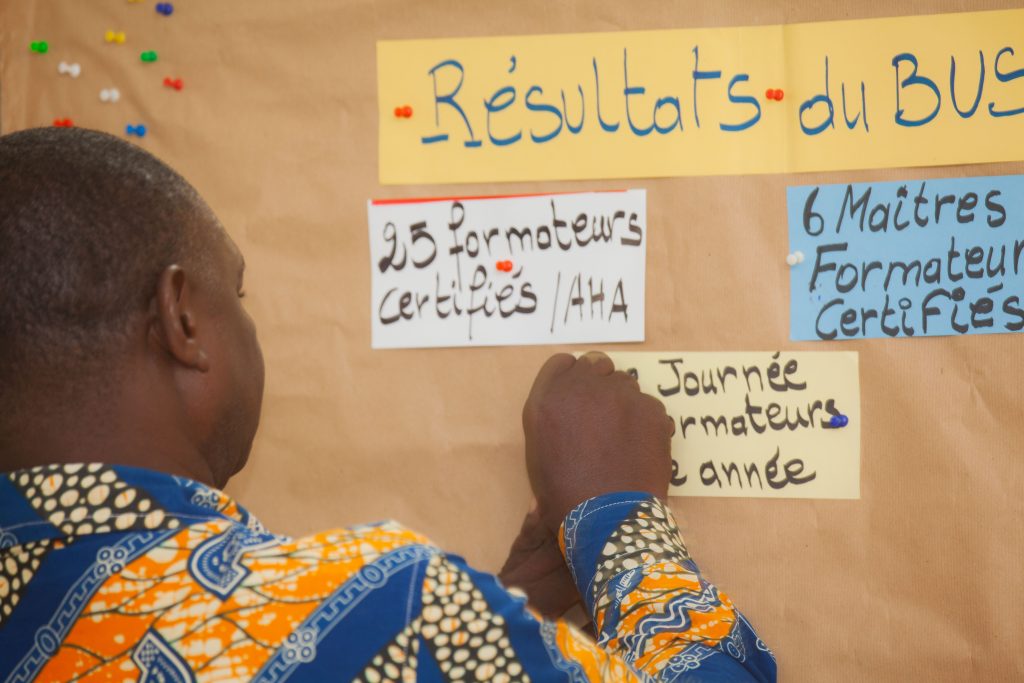 Résultats du BUS
25 formateurs
certifiés /AHA
6 Maîtres
Formateur
Certifiés
Journée
rmateurs
année